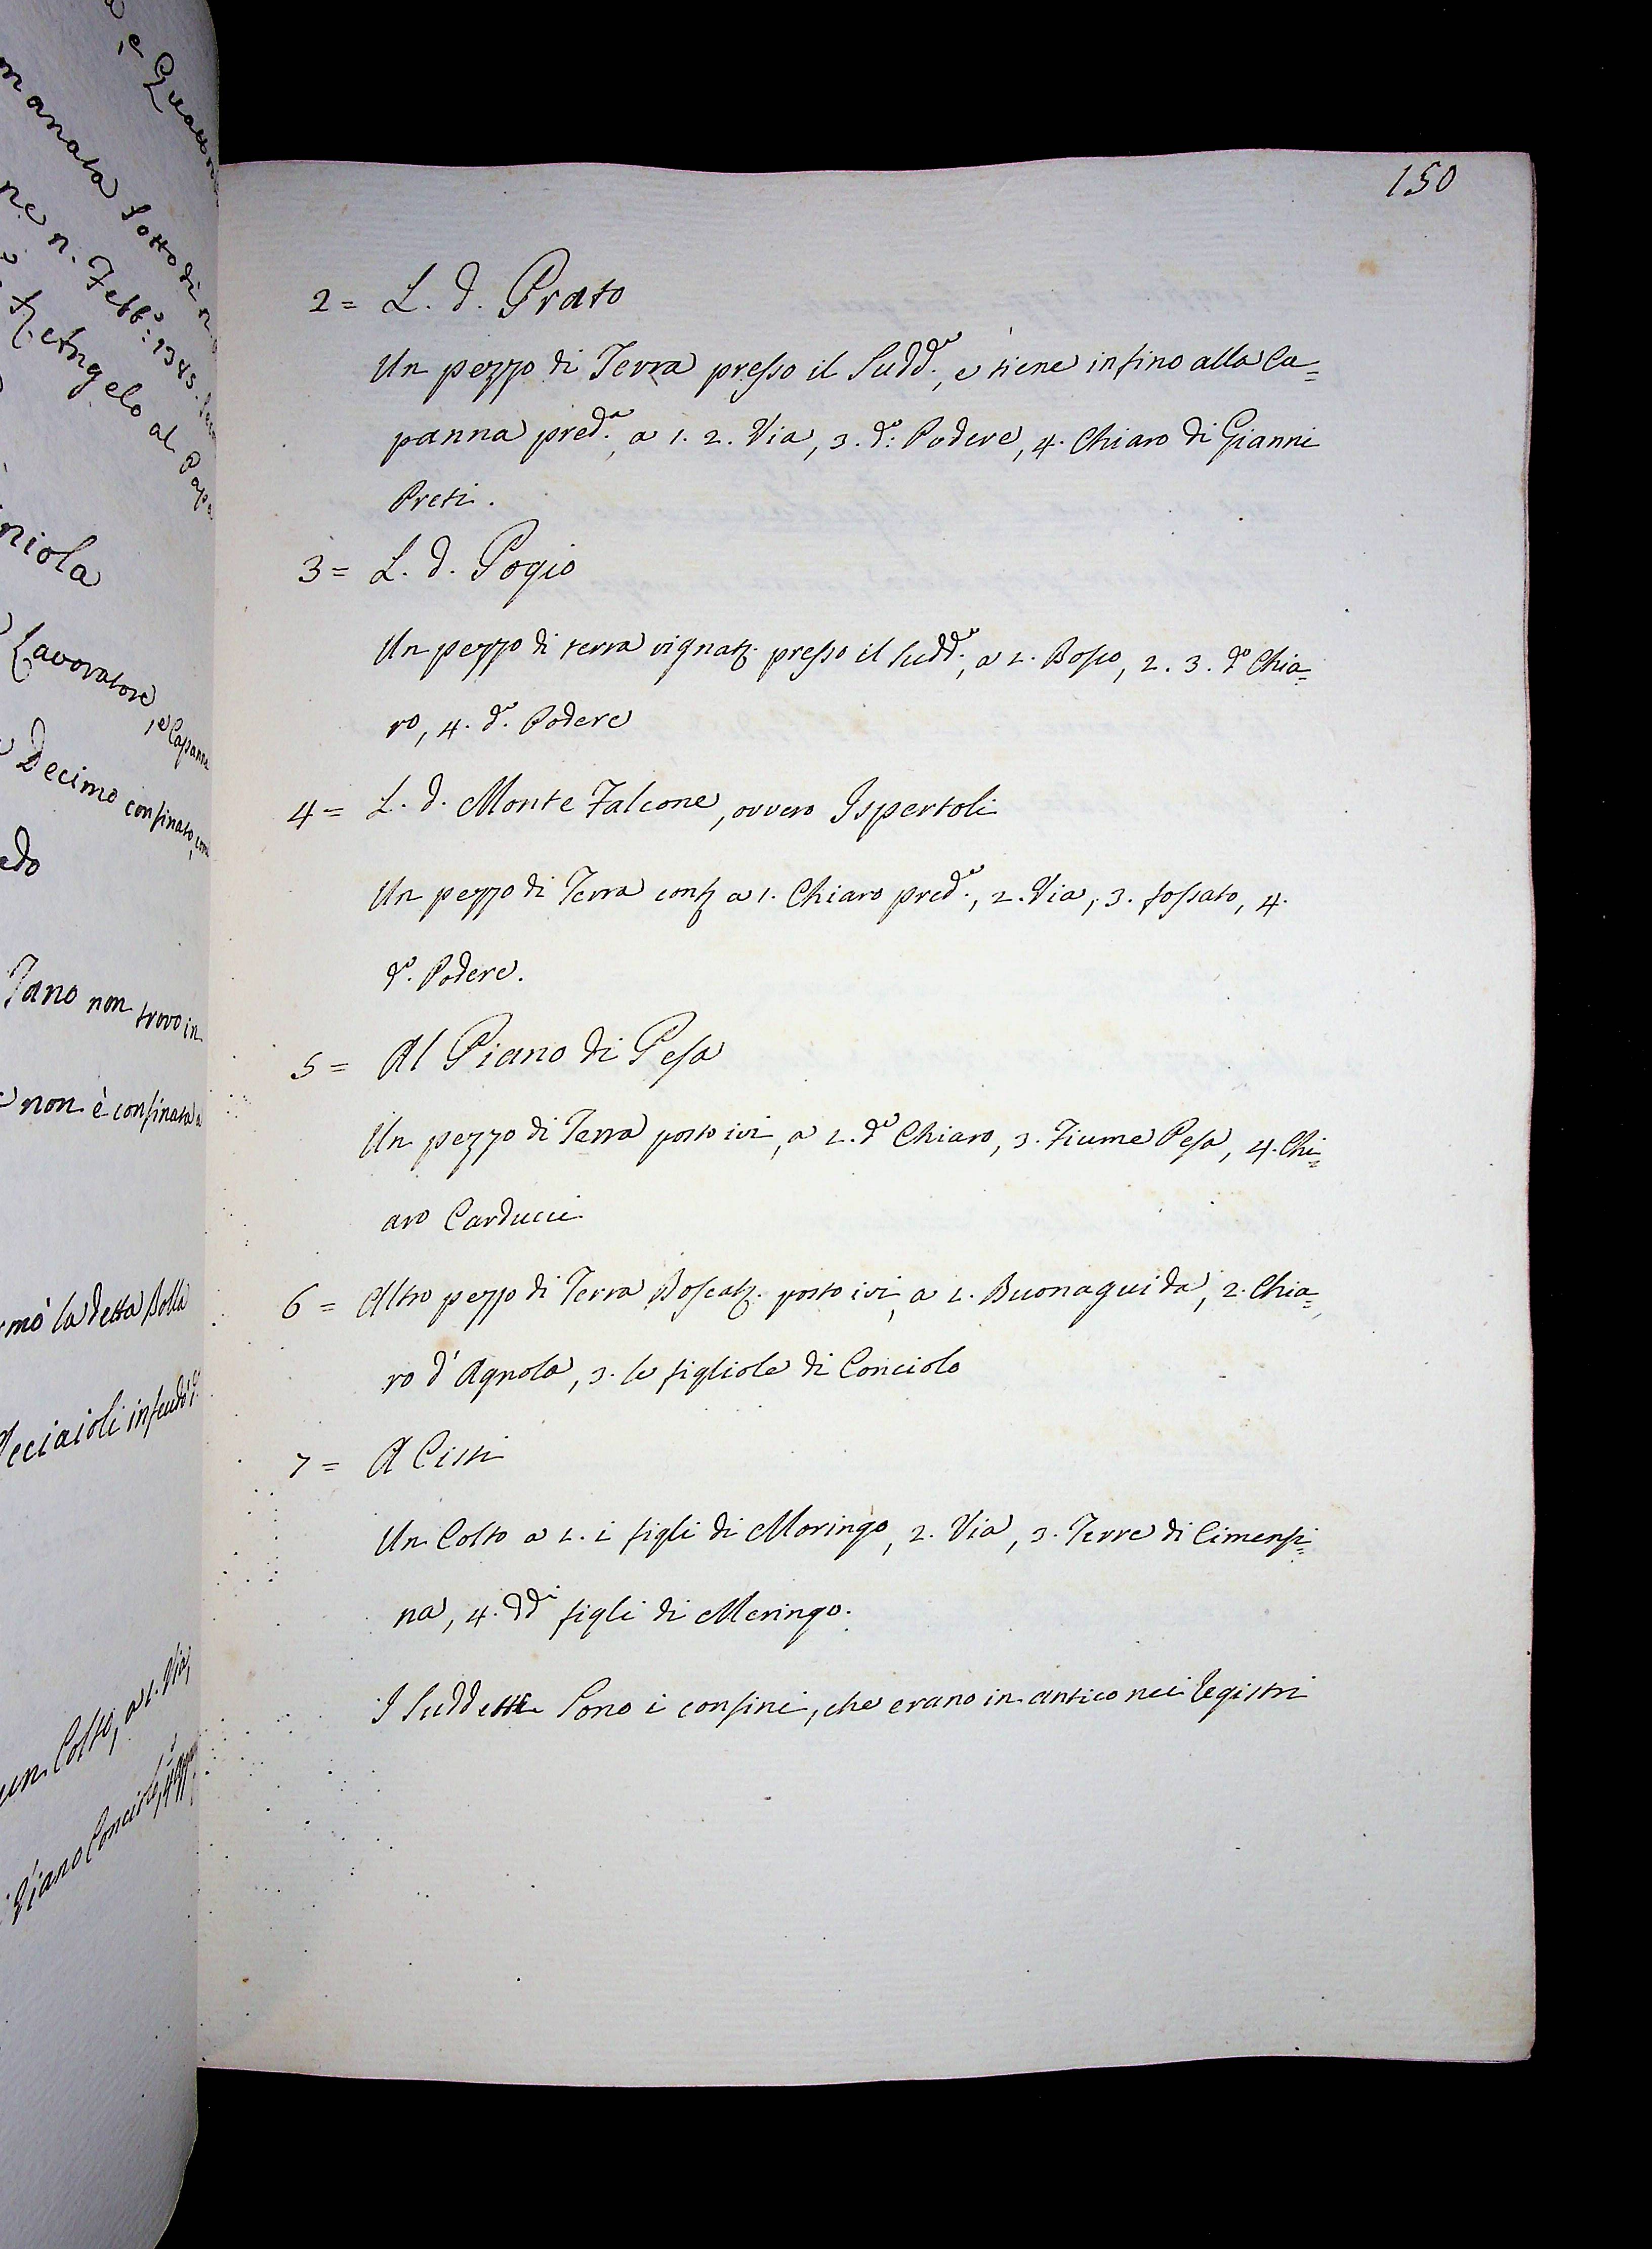 150
2 = L. d. Prato
Un pezzo di Terra presso il Sudd.º, e tiene insino alla Ca=
panna pred.ª, a 1. 2. Via, 3. d.º Podere, 4. Chiaro di Gianni
Preti.
3 = L. d. Pogio
Un pezzo di terra vignat. presso il sudd.º, a 1. Bosco, 2. 3. d.º Chia=
ro, 4. d.º Podere
4 = L. d. Monte Falcone, ovvero Ispertoli
Un pezzo di Terra conf. a 1. Chiaro pred.º, 2. Via, 3. fossato, 4.
d.º Podere.
5 = Al Piano di Pesa
Un pezzo di Terra posto ivi, a 1. d.º Chiaro, 3. Fiume Pesa, 4. Chi=
aro Carducci
6 = Altro pezzo di Terra Boscat. posto ivi, a 1. Buonaguida, 2. Chia=
ro d' Agnola, 3. le figliole di Conciolo
7 = A Cisti
Un Colto a 1. i figli di Moringo, 2. Via, 3. Terre di Cimensi=
na, 4. dd.i figli di Meringo.
I Suddetti Sono i confini, che erano in antico nei Registri
manata sotto dì
Febb.º: 1345.
Angelo al
niola
Lavoratore, e Capanna
Decimo confinato, com
Jano non trovo in
non è confinata a
rmò la detta Bolla
cciaioli infeudò
un Colto, a 1. Via,